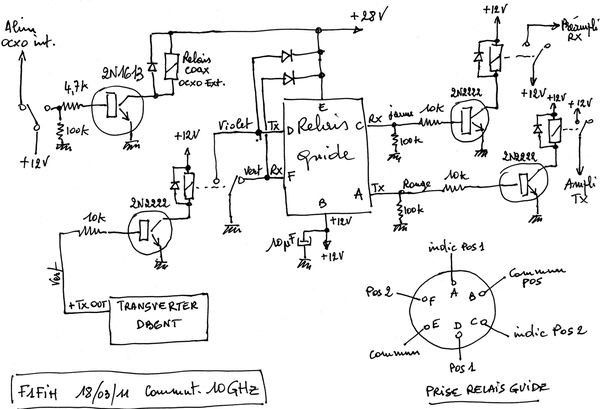 Alim
OCXO int.
+12V
4,7k
100k
2N1613
Relais
coax
OCXO Ext.
+28V
Violet
Tx
Vert
Rx
E
D
Relais
C
guide
F
A
B
+12V
10µF
+12V
Rx
jaune
10k
100k
2N2222
+12V
Préampli
RX
+12V
+12V
+12V
Tx
Rouge
10k
100k
2N2222
Ampli
TX
+12V
2N2222
10k
Vert
+TX OUT
TRANSVERTER
DB6NT
indic Pos 1
Pos 2
F
A
B
Commun
pos
E
D
C
indic Pos 2
commun
Pos 1
F1FIH 18/03/11 Commut. 10GHz
PRISE RELAIS GUIDE